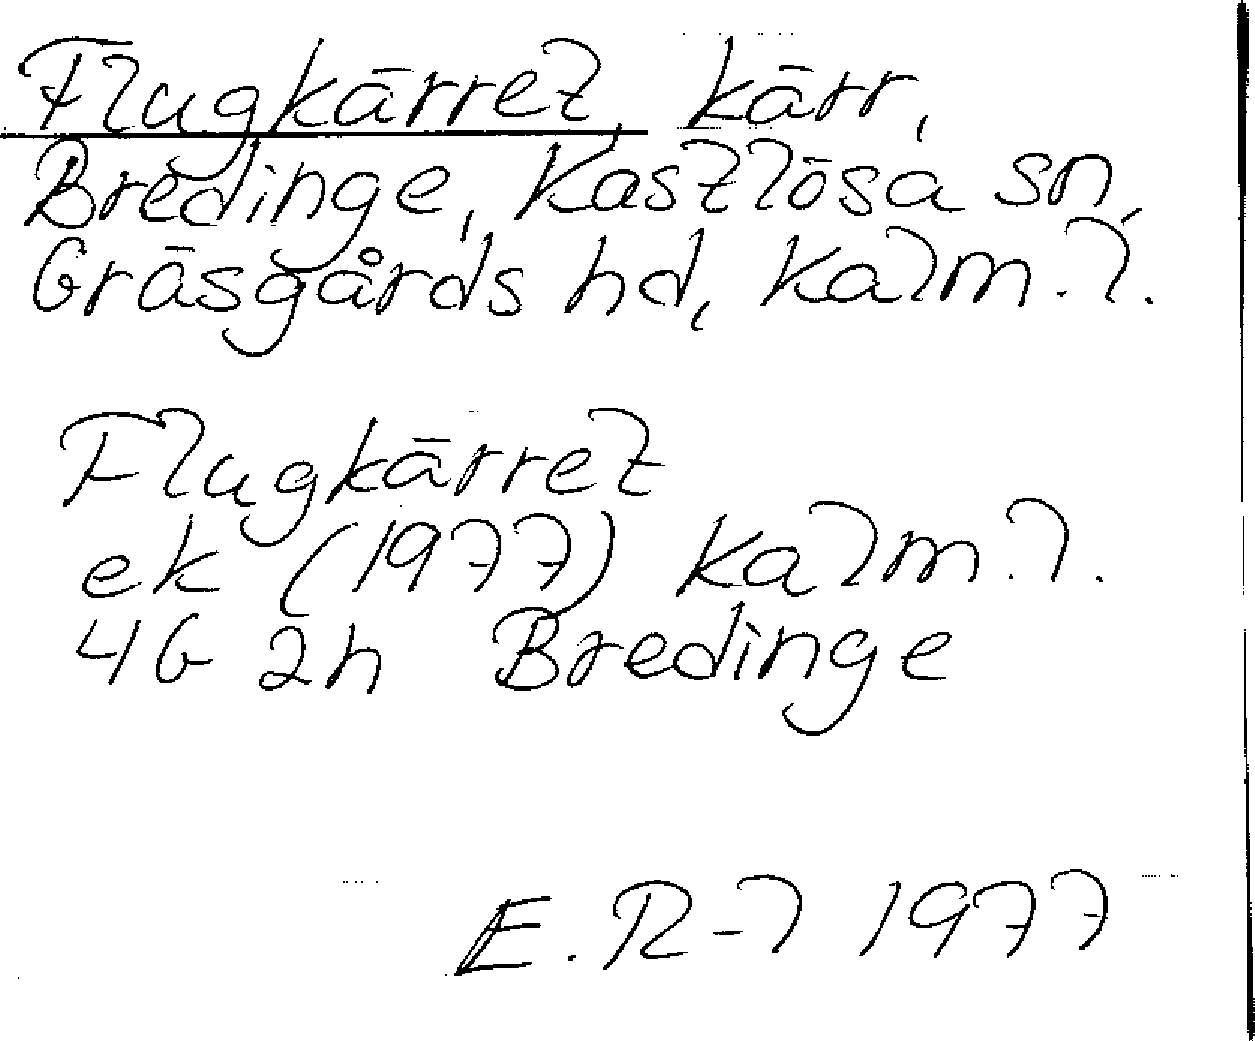 Flugkärret, kärr,
Bredinge, Kastlösa sn,
Gräsgårds hd, Kalm. l.
Flugkärret
ek (1977) Kalm. l.
4G 2h Bredinge
E. R-l 1977